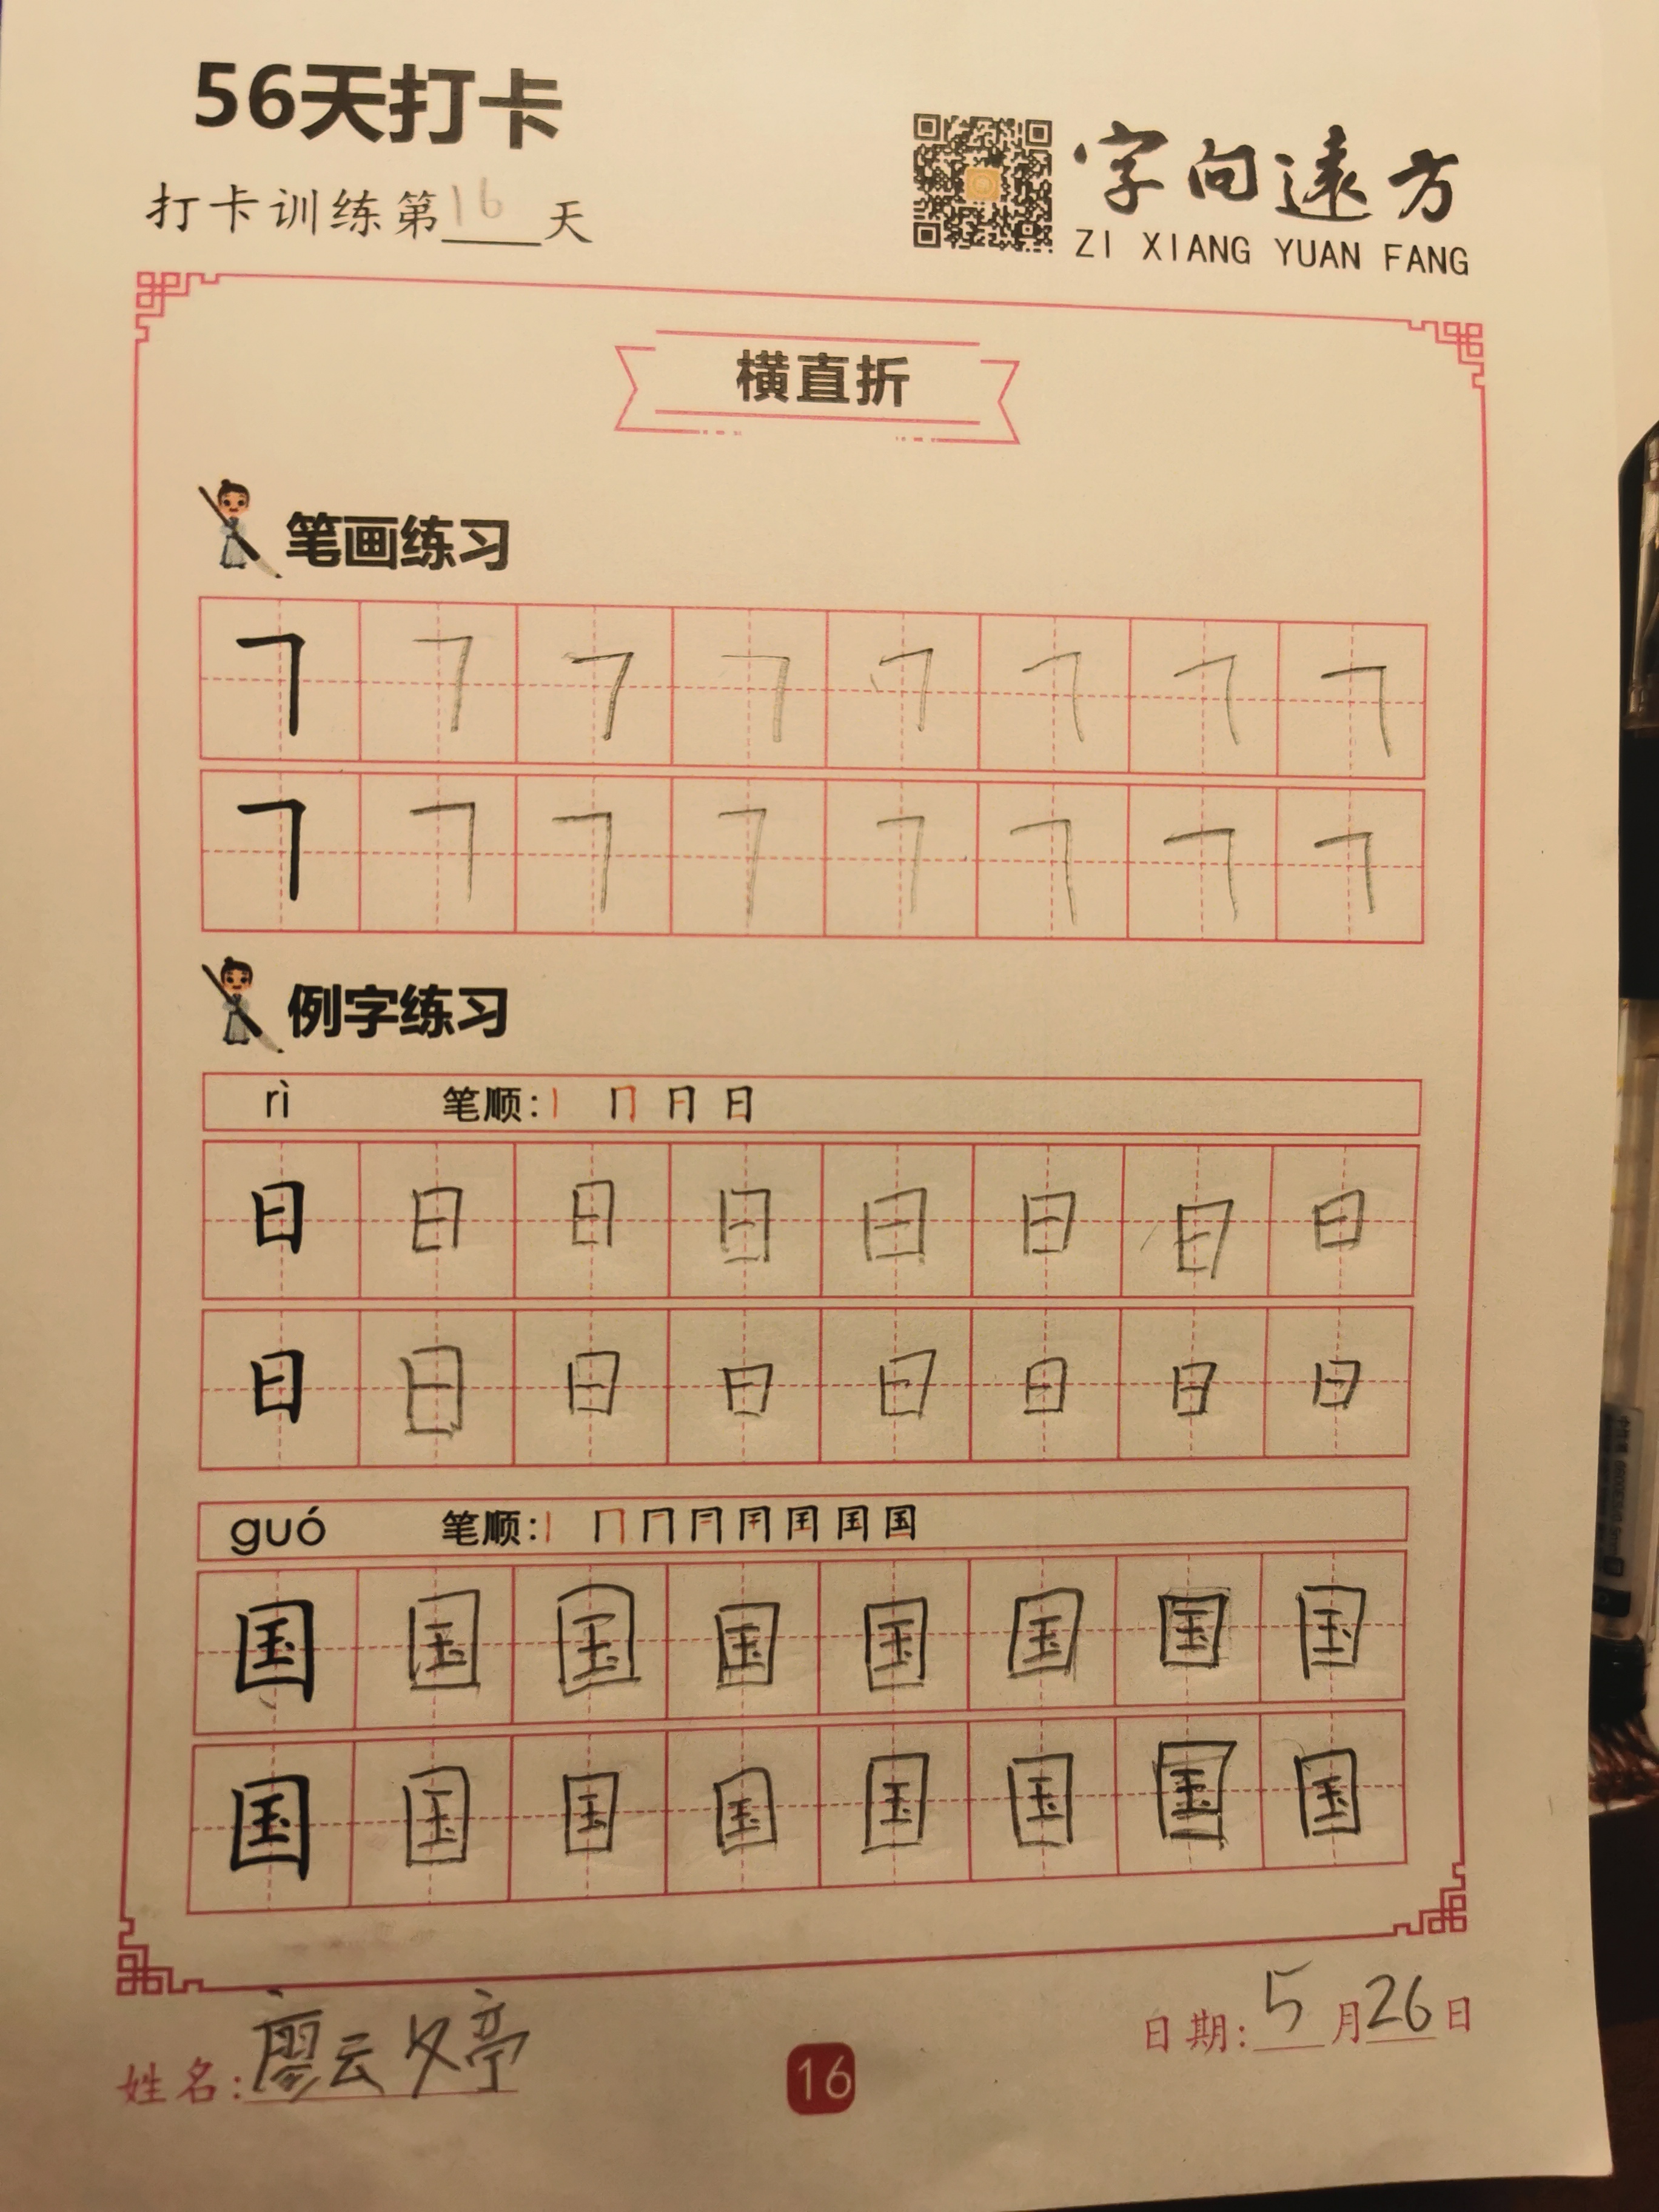 56天打卡
打卡训练第16天
字向遠方
ZI XIANG YUAN FANG
横直折
笔画练习
例字练习
rì 笔顺:
日 日 日 日 日 日 日 日
日 日 日 日 日 日 日 日
guó 笔顺:
国 国 国 国 国 国 国 国
国 国 国 国 国 国 国 国
姓名:廖云婷
日期:5月26日
16